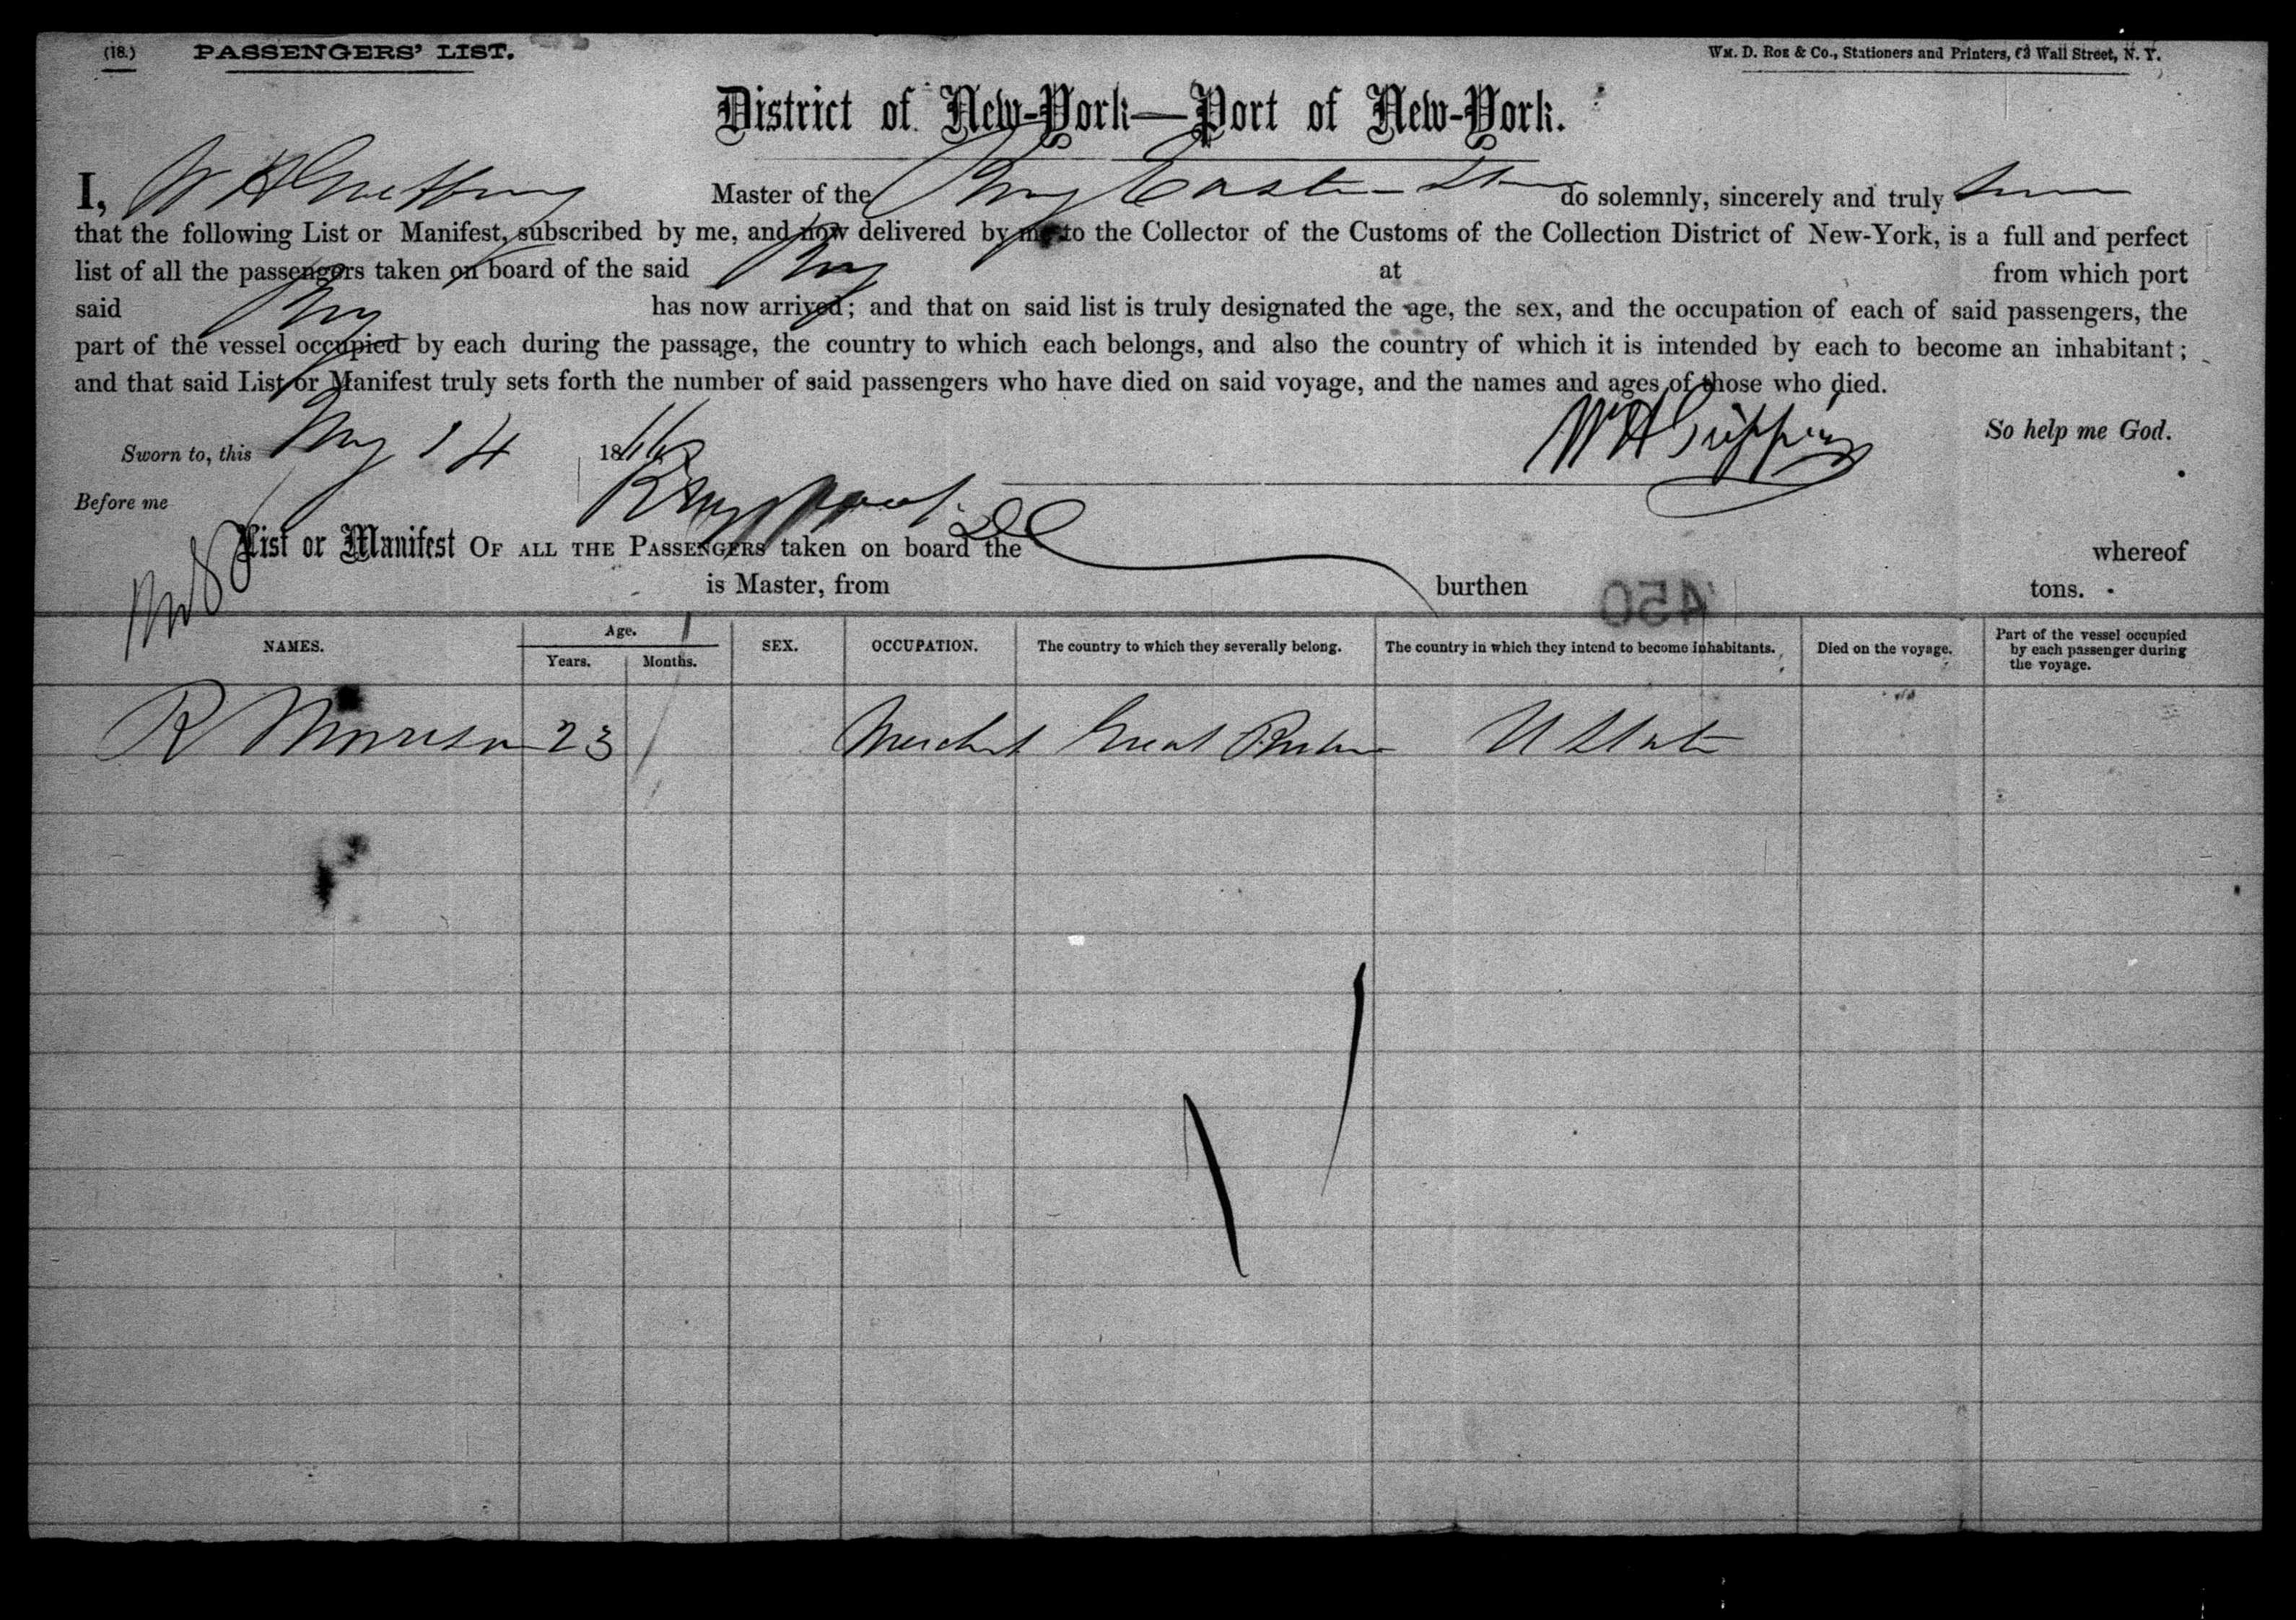 (18.) PASSENGERS' LIST. Wm. D. Roe & Co., Stationers and Printers, 63 Wall Street, N. Y.
District of New-York—Port of New-York.
I, W H Master of the Brig Eastern Star do solemnly, sincerely and truly swear
that the following List or Manifest, subscribed by me, and now delivered by me to the Collector of the Customs of the Collection District of New-York, is a full and perfect
list of all the passengers taken on board of the said Brig at from which port
said Brig has now arrived; and that on said list is truly designated the age, the sex, and the occupation of each of said passengers, the
part of the vessel occupied by each during the passage, the country to which each belongs, and also the country of which it is intended by each to become an inhabitant;
and that said List or Manifest truly sets forth the number of said passengers who have died on said voyage, and the names and ages of those who died.
Sworn to, this May 14 1866 W H So help me God.
Before me
List or Manifest OF ALL THE PASSENGERS taken on board the whereof
is Master, from burthen tons.
450
NAMES. Age. Years. Months. SEX. OCCUPATION. The country to which they severally belong. The country in which they intend to become inhabitants. Died on the voyage. Part of the vessel occupied by each passenger during the voyage.
R Morrison 23 Merchant Great Britain U States